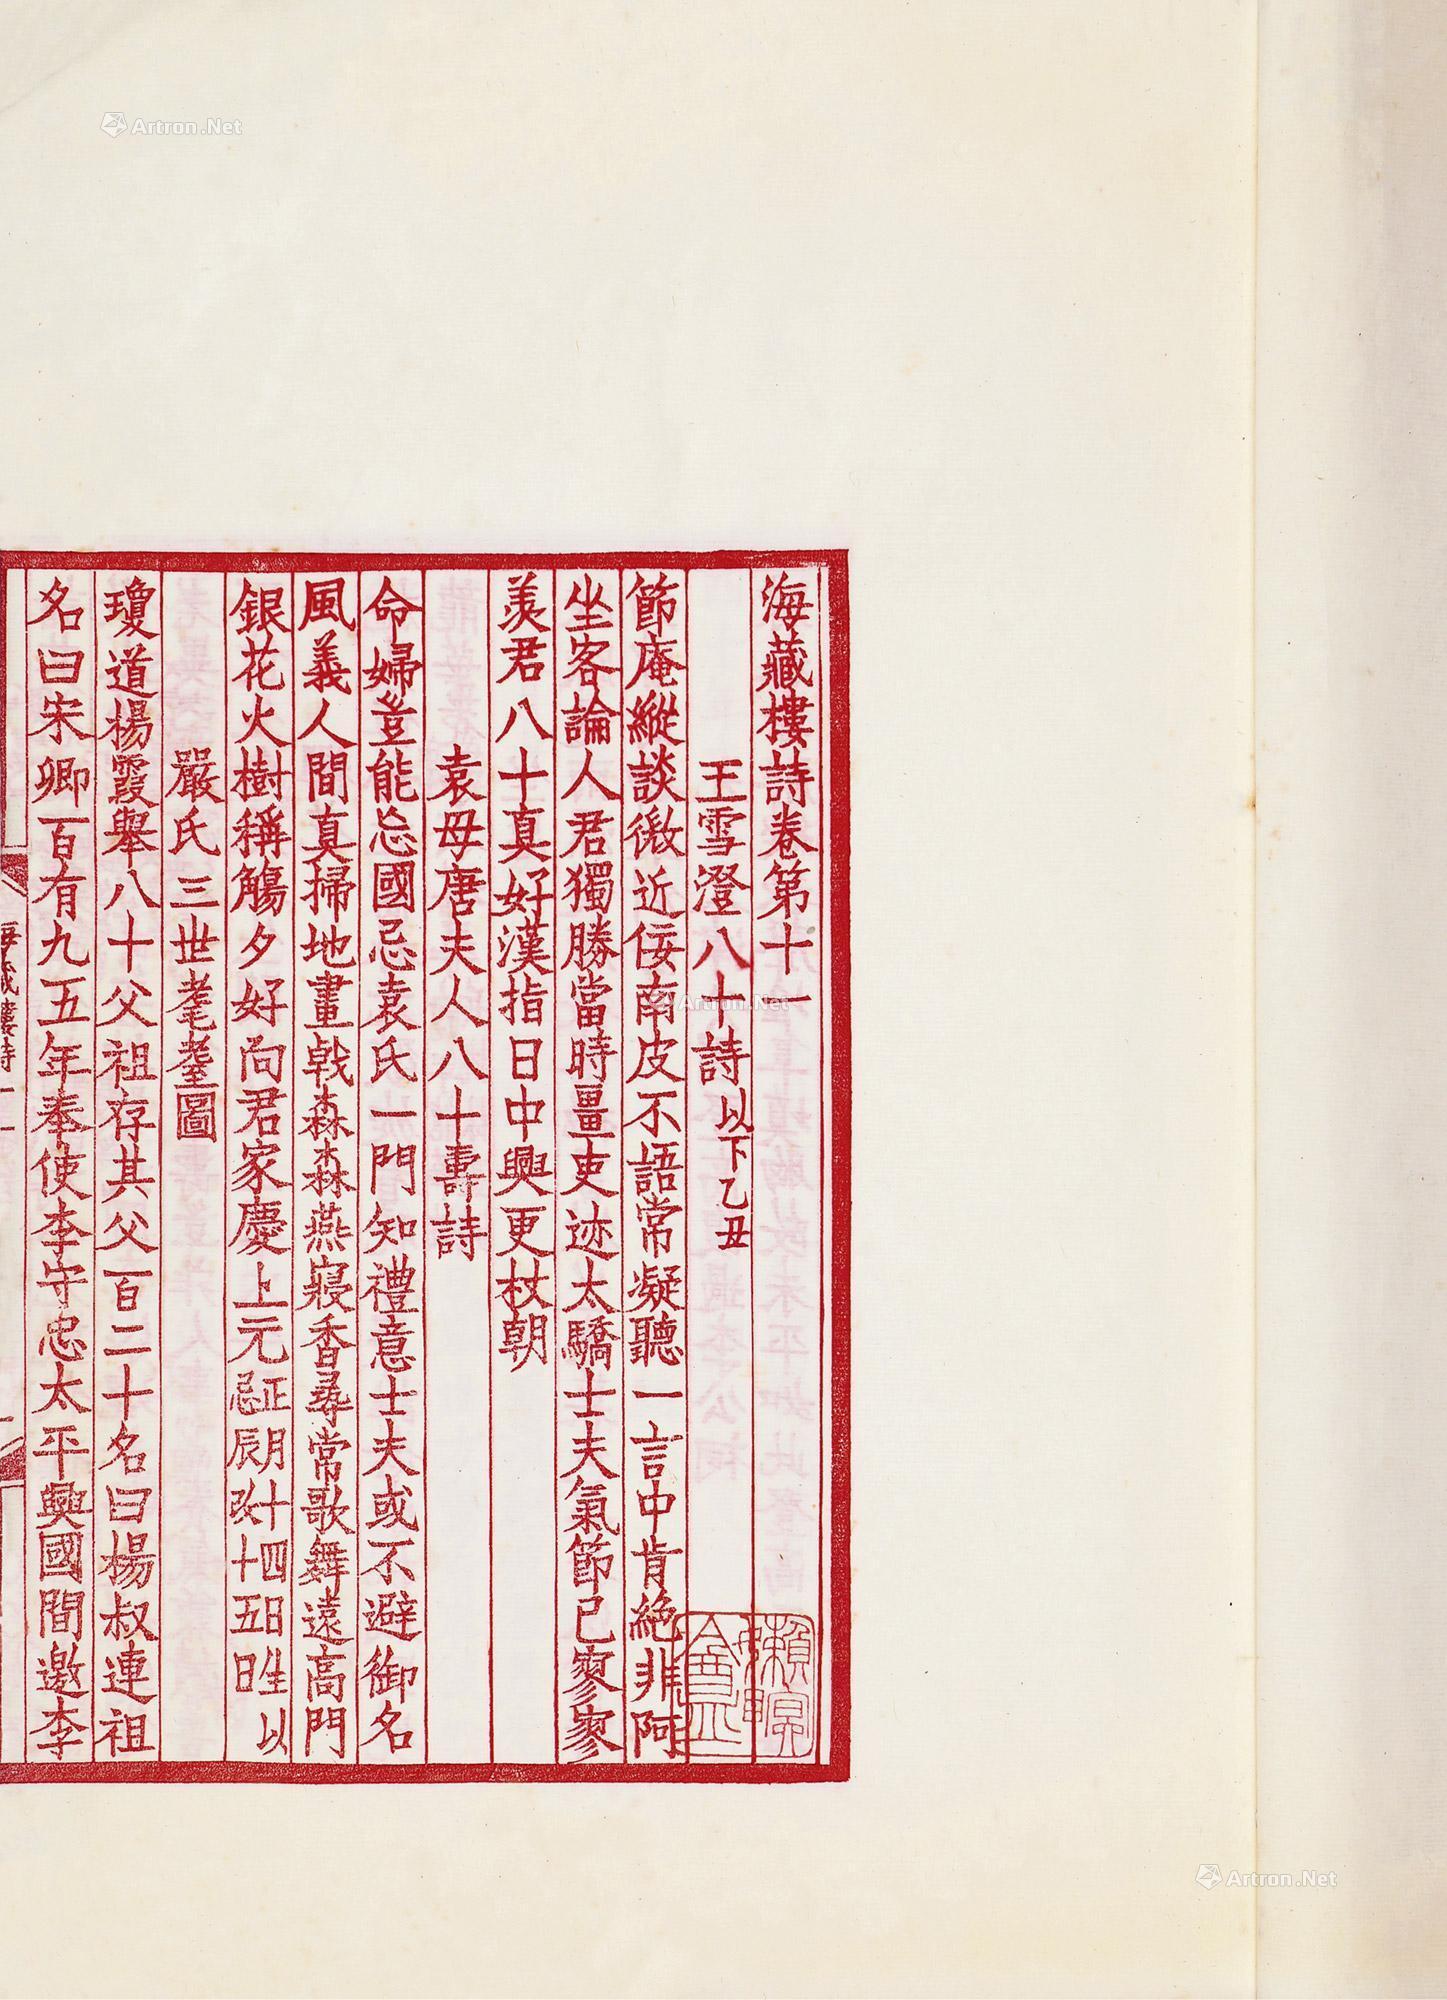 海藏樓詩卷第十一
王雪澄八十詩 以下乙丑
節庵縱談微近佞南皮不語常凝聽一言中肯絶非阿
坐客論人君獨勝當時畺吏迹太驕士夫氣節已寥寥
羨君八十真好漢指日中興更杖朝
袁母唐夫人八十壽詩
命婦豈能忘國忌袁氏一門知禮意士夫或不避御名
風義人間真掃地畫戟森森燕寢香尋常歌舞遠高門
銀花火樹稱觴夕好向君家慶上元 正月十四日生以忌辰改十五日
嚴氏三世耄耋圖
瓊道楊霞舉八十父祖存其父百二十名曰楊叔連祖
名曰宋卿百有九五年奉使李守忠太平興國間邀李
Artron.Net
Artron.Net
Artron.Net